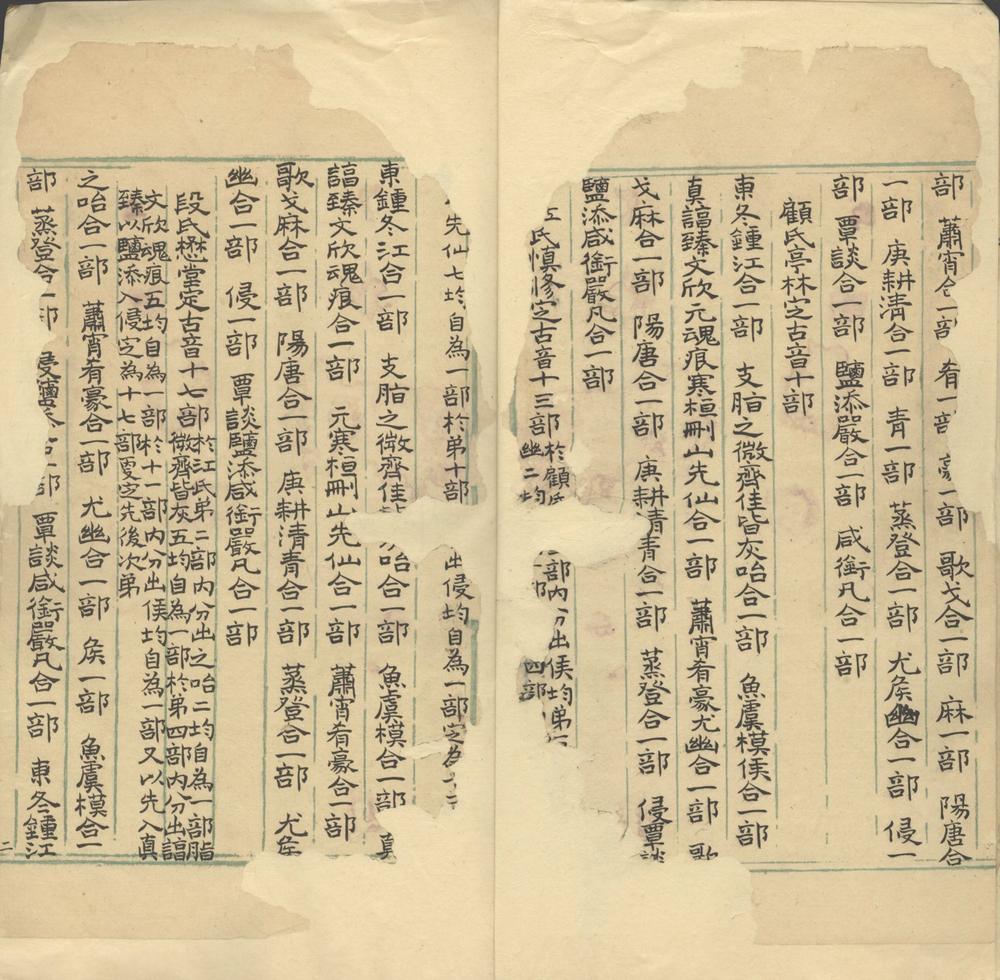 部　蕭宵合一部　肴一部　豪一部　歌戈合一部　麻一部　陽唐合
一部　庚耕清合一部　青一部　蒸登合一部　尤矦幽合一部　侵一
部　覃談合一部　鹽添嚴合一部　咸銜凡合一部
顧氏亭林定古音十部
東冬鍾江合一部　支脂之微齊佳皆灰咍合一部　魚虞模矦合一部
真諄臻文欣元魂痕寒桓刪山先仙合一部　蕭宵肴豪尤幽合一部　歌
戈麻合一部　陽唐合一部　庚耕清青合一部　蒸登合一部　侵覃談
鹽添咸銜嚴凡合一部
氏慎修定古音十三部
於顧
部內分出矦均弟
幽二均
部
四部
先仙七均自為一部於弟十部
出侵均自為一部定為
東鍾冬江合一部　支脂之微齊佳咍合一部　魚虞模合一部　真
諄臻文欣魂痕合一部　元寒桓刪山先仙合一部　蕭宵肴豪合一部
歌戈麻合一部　陽唐合一部　庚耕清青合一部　蒸登合一部　尤矦
幽合一部　侵一部　覃談鹽添咸銜嚴凡合一部
段氏懋堂定古音十七部
於江氏弟二部內分出之咍二均自為一部脂
微齊皆灰五均自為一部於弟四部內分出諄
文欣魂痕五均自為一部於十一部內分出矦均自為一部又以先入真
臻以鹽添入侵定為十七部更定先後次弟
之咍合一部　蕭宵肴豪合一部　尤幽合一部　矦一部　魚虞模合一
部　蒸登合一部　侵鹽添合一部　覃談咸銜嚴凡合一部　東冬鍾江
二